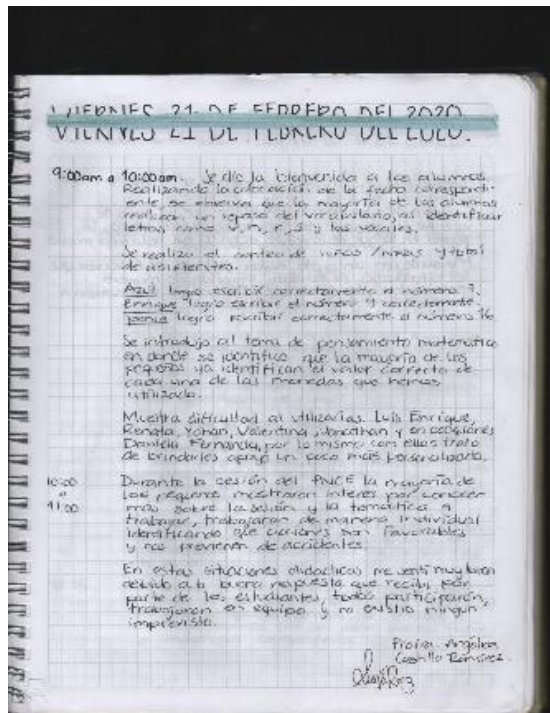 VIERNES 21 DE FEBRERO DEL 2020.
9:00am a 10:00am. Se dio la bienvenida a los alumnos.
Realizando la colocación de la fecha correspondi-
ente, se observa que la mayoría de los alumnos
realizan un repaso del vocabulario, as identificar
letras como v, n, r, s y las vocales.
Se realizo el conteo de niños /niñas y total
de asistentes.
Azul logro escribir correctamente el número 7.
Enrique logro escribir el número 9 correctamente.
logra escribir correctamente el número 16
Se introdujo al tema de pensamiento matematico
en donde se identifico que la mayoría de los
pequeños ya identifican el valor correcto de
cada una de las monedas que hemos
utilizado.
Muestra dificultad al utilizarlas. Luis Enrique,
Renata, Yohan, Valentina, Jonathan y en ocasiones
Daniela Fernanda, por lo mismo con ellos trato
de brindarles apoyo un poco más personalizado.
10:00 a 11:00 Durante la sesión del PNCE la mayoría de
los pequeños mostraron interes por conocer
más sobre la sesión y la temática a
trabajar, trabajaron de manera individual
identificando que acciones son favorables
y nos previenen de accidentes.
En estas situaciones didacticas me senti muy bien
debido a la buena respuesta que recibi por
parte de los estudiantes, todos participaron,
trabajaron en equipo y no existio ningún
imprevisto.
Profra. Angélica
Castillo Ramírez.